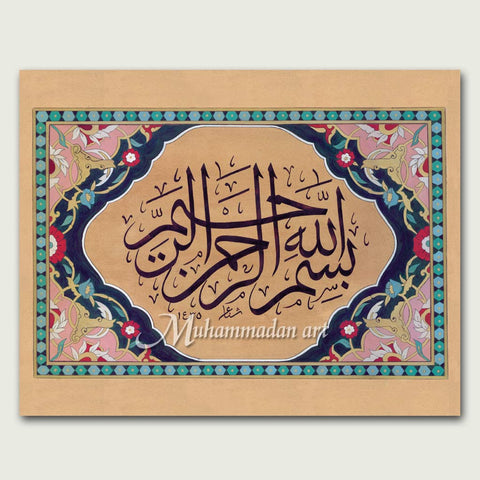 بِسْمِ اللّٰهِ الرَّحْمٰنِ الرَّحِيمِ
١٤٣٥
Muhammadan art